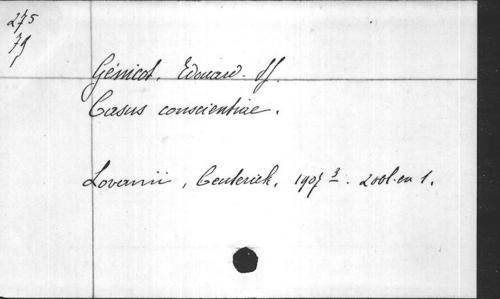 275
79
Génicot, Edouard. SJ.
Casus conscientiae.
Lovanii, Ceuterick, 1907 3. 2 vol. en 1.